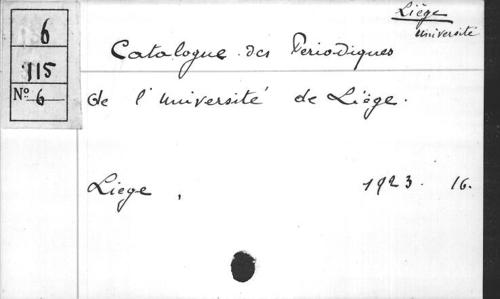 Liège
Université
6
115
Nº 6
Catalogue des Periodiques
de l'Université de Liège.
Liege, 1923. 16.